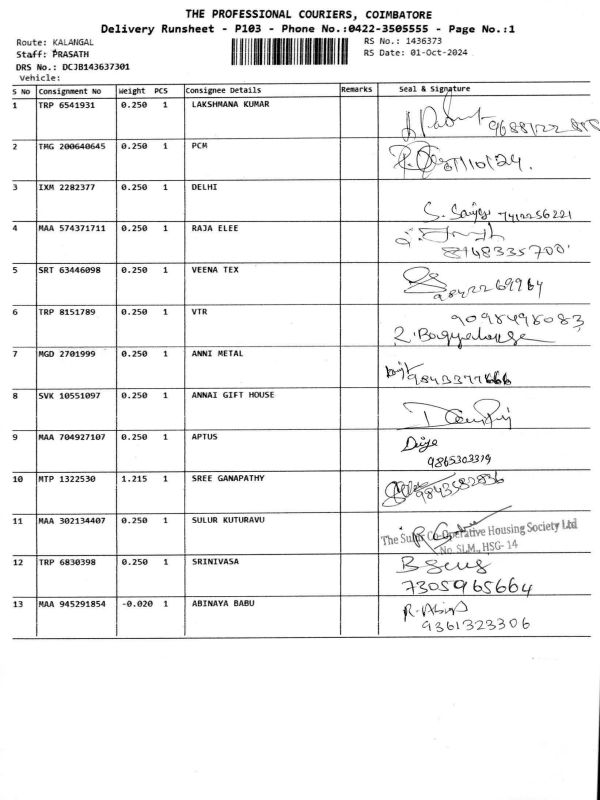 THE PROFESSIONAL COURIERS, COIMBATORE
Delivery Runsheet - P103 - Phone No.:0422-3505555 - Page No.:1
Route: KALANGAL RS No.: 1436373
Staff: PRASATH RS Date: 01-Oct-2024
DRS No.: DCJB143637301
Vehicle:
S No Consignment No Weight PCS Consignee Details Remarks Seal & Signature
1 TRP 6541931 0.250 1 LAKSHMANA KUMAR
2 TMG 200640645 0.250 1 PCM
3 IXM 2282377 0.250 1 DELHI
S. 7412256221
4 MAA 574371711 0.250 1 RAJA ELEE
8148335700
5 SRT 63446098 0.250 1 VEENA TEX
9842269964
6 TRP 8151789 0.250 1 VTR
9098498083
7 MGD 2701999 0.250 1 ANNI METAL
9843377666
8 SVK 10551097 0.250 1 ANNAI GIFT HOUSE
9 MAA 704927107 0.250 1 APTUS
9865303379
10 MTP 1322530 1.215 1 SREE GANAPATHY
9843582836
11 MAA 302134407 0.250 1 SULUR KUTURAVU
The Sulur Co-Operative Housing Society Ltd
No. SLM., HSG- 14
12 TRP 6830398 0.250 1 SRINIVASA
7305965664
13 MAA 945291854 -0.020 1 ABINAYA BABU
9361323306